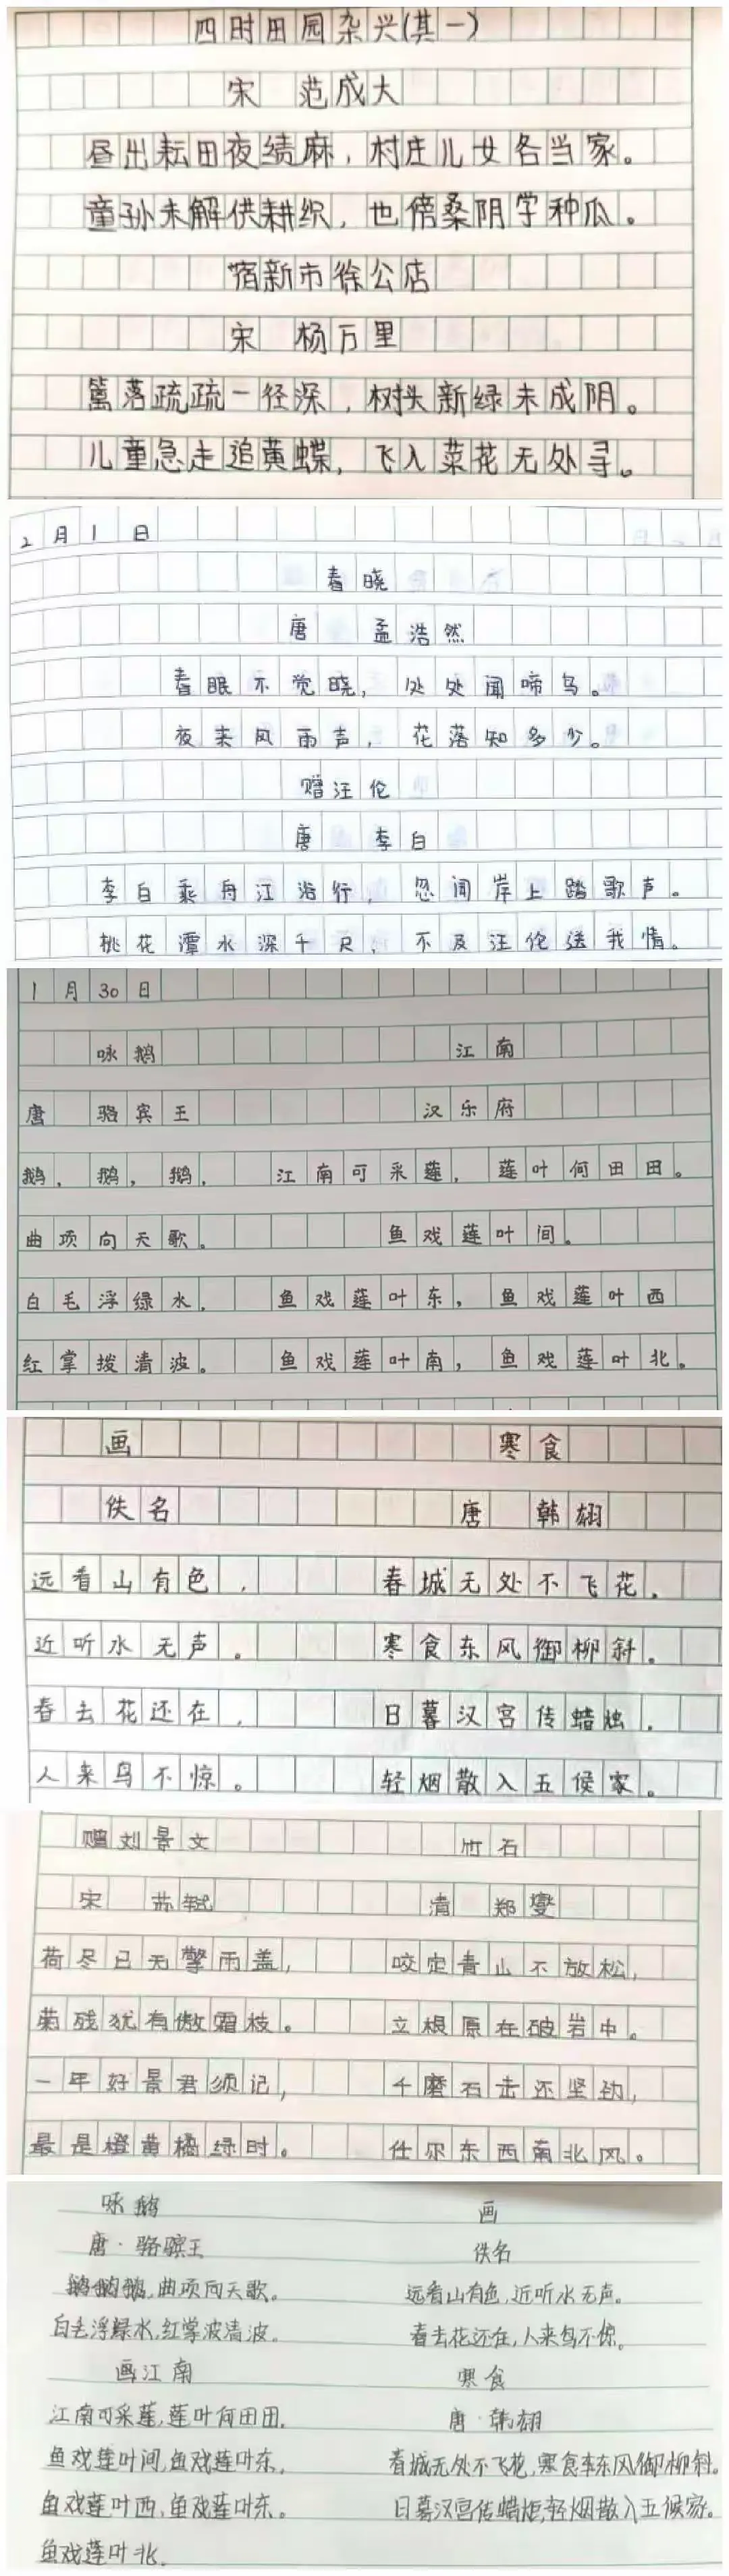 四时田园杂兴(其一)
宋 范成大
昼出耘田夜绩麻，村庄儿女各当家。
童孙未解供耕织，也傍桑阴学种瓜。
宿新市徐公店
宋 杨万里
篱落疏疏一径深，树头新绿未成阴。
儿童急走追黄蝶，飞入菜花无处寻。
2月1日
春晓
唐 孟浩然
春眠不觉晓，处处闻啼鸟。
夜来风雨声，花落知多少。
赠汪伦
唐 李白
李白乘舟江浴行，忽闻岸上踏歌声。
桃花潭水深千尺，不及汪伦送我情。
1月30日
咏鹅 江南
唐 骆宾王 汉乐府
鹅，鹅，鹅， 江南可采莲，莲叶何田田。
曲项向天歌。 鱼戏莲叶间。
白毛浮绿水， 鱼戏莲叶东，鱼戏莲叶西
红掌拨清波。 鱼戏莲叶南，鱼戏莲叶北。
画 寒食
佚名 唐 韩翃
远看山有色， 春城无处不飞花，
近听水无声。 寒食东风御柳斜。
春去花还在， 日暮汉宫传蜡烛，
人来鸟不惊。 轻烟散入五侯家。
赠刘景文 竹石
宋 苏轼 清 郑燮
荷尽已无擎雨盖， 咬定青山不放松，
菊残犹有傲霜枝。 立根原在破岩中。
一年好景君须记， 千磨石击还坚劲，
最是橙黄橘绿时。 任尔东西南北风。
咏鹅 画
唐·骆骔王 佚名
鹅鹅鹅，曲项向天歌。 远看山有色，近听水无声。
白毛浮绿水，红掌波清波。 春去花还在，人来鸟不惊。
画江南 寒食
江南可采莲，莲叶何田田， 唐·韩翃
鱼戏莲叶间，鱼戏莲叶东， 春城无处不飞花，寒食东风御柳斜。
鱼戏莲叶西，鱼戏莲叶东。 日暮汉宫传蜡炬，轻烟散入五候家。
鱼戏莲叶北，